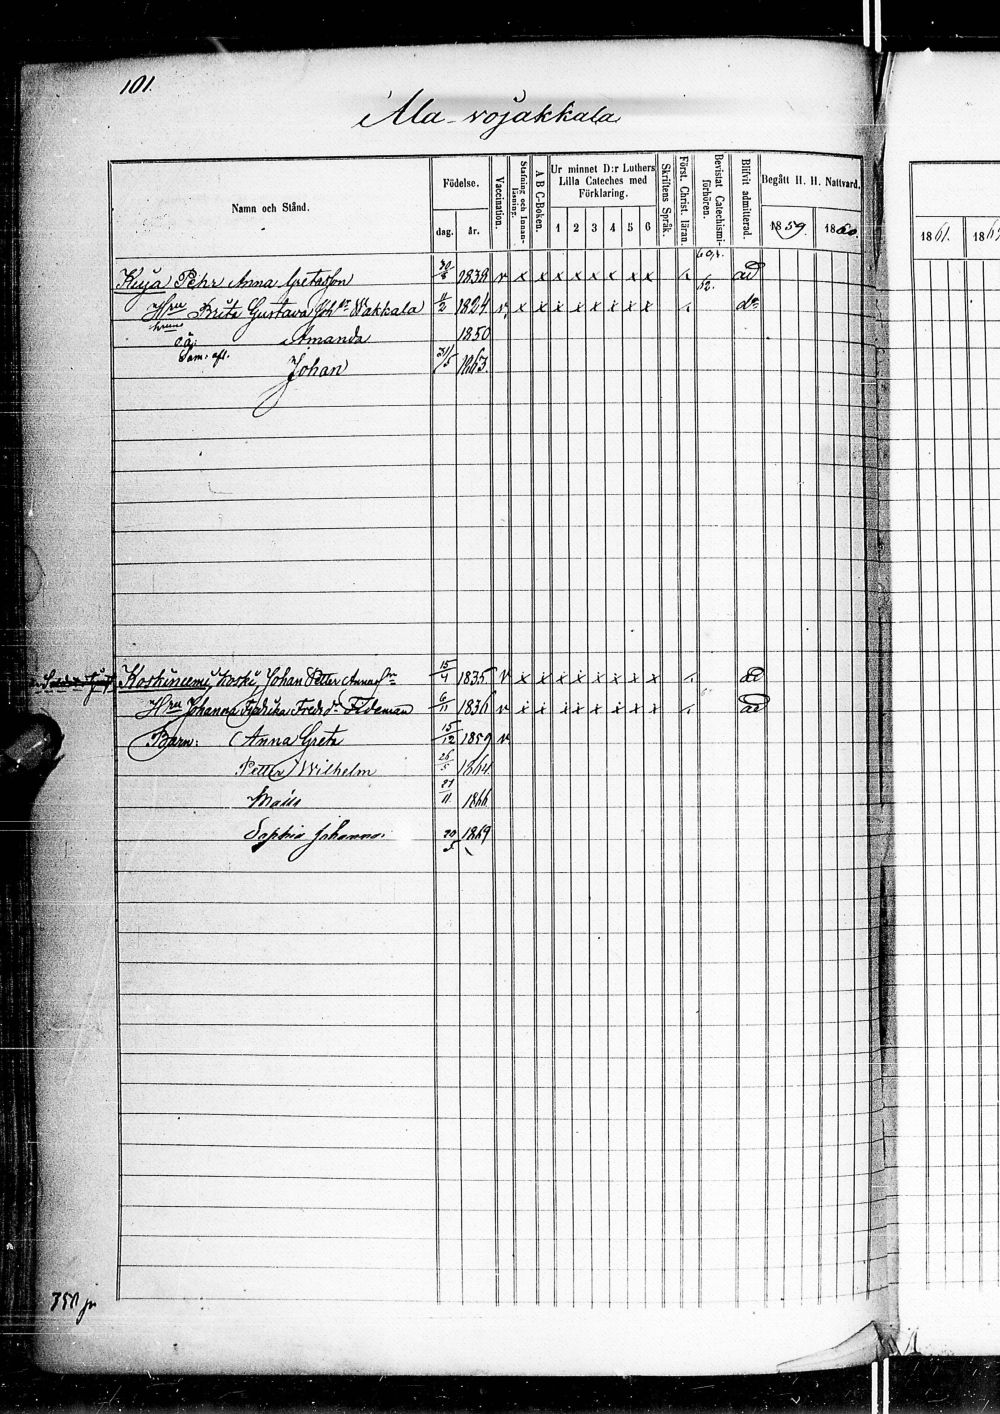 101.
Ala-vojakkala
Namn och Stånd.
Födelse.
dag.
år.
Vaccination.
Stafning och Innanläsning.
A B C-Boken.
Ur minnet D:r Luthers Lilla Cateches med Förklaring.
1 2 3 4 5 6
Skriftens Språk.
Först. Christ. läran.
Bevistat Catechismiförhören.
Blifvit admitterad.
Begått H. H. Nattvard.
1859.
1860.
1861.
Kuja Pehr Anna Gretasson 1838 v x x x x x x x x ad
62.
Hru Brita Gustava Joh Dr Wakkala 11/2 1824 v x x x x x x x x do
Amanda 1850
Sam. aft.
Johan 1863.
Koskineemi Johan Petter 15/4 1835 v x x x x x x x x ad
Hru Johanna Fredrika Fredr dr Fideman 6/11 1836 v x x x x x x x x ad
Barn: Anna Greta 15/12 1859 v
Petter Wilhelm 26/5 1864.
Maria 21/11 1866
Sophia Johanna 20/5 1869